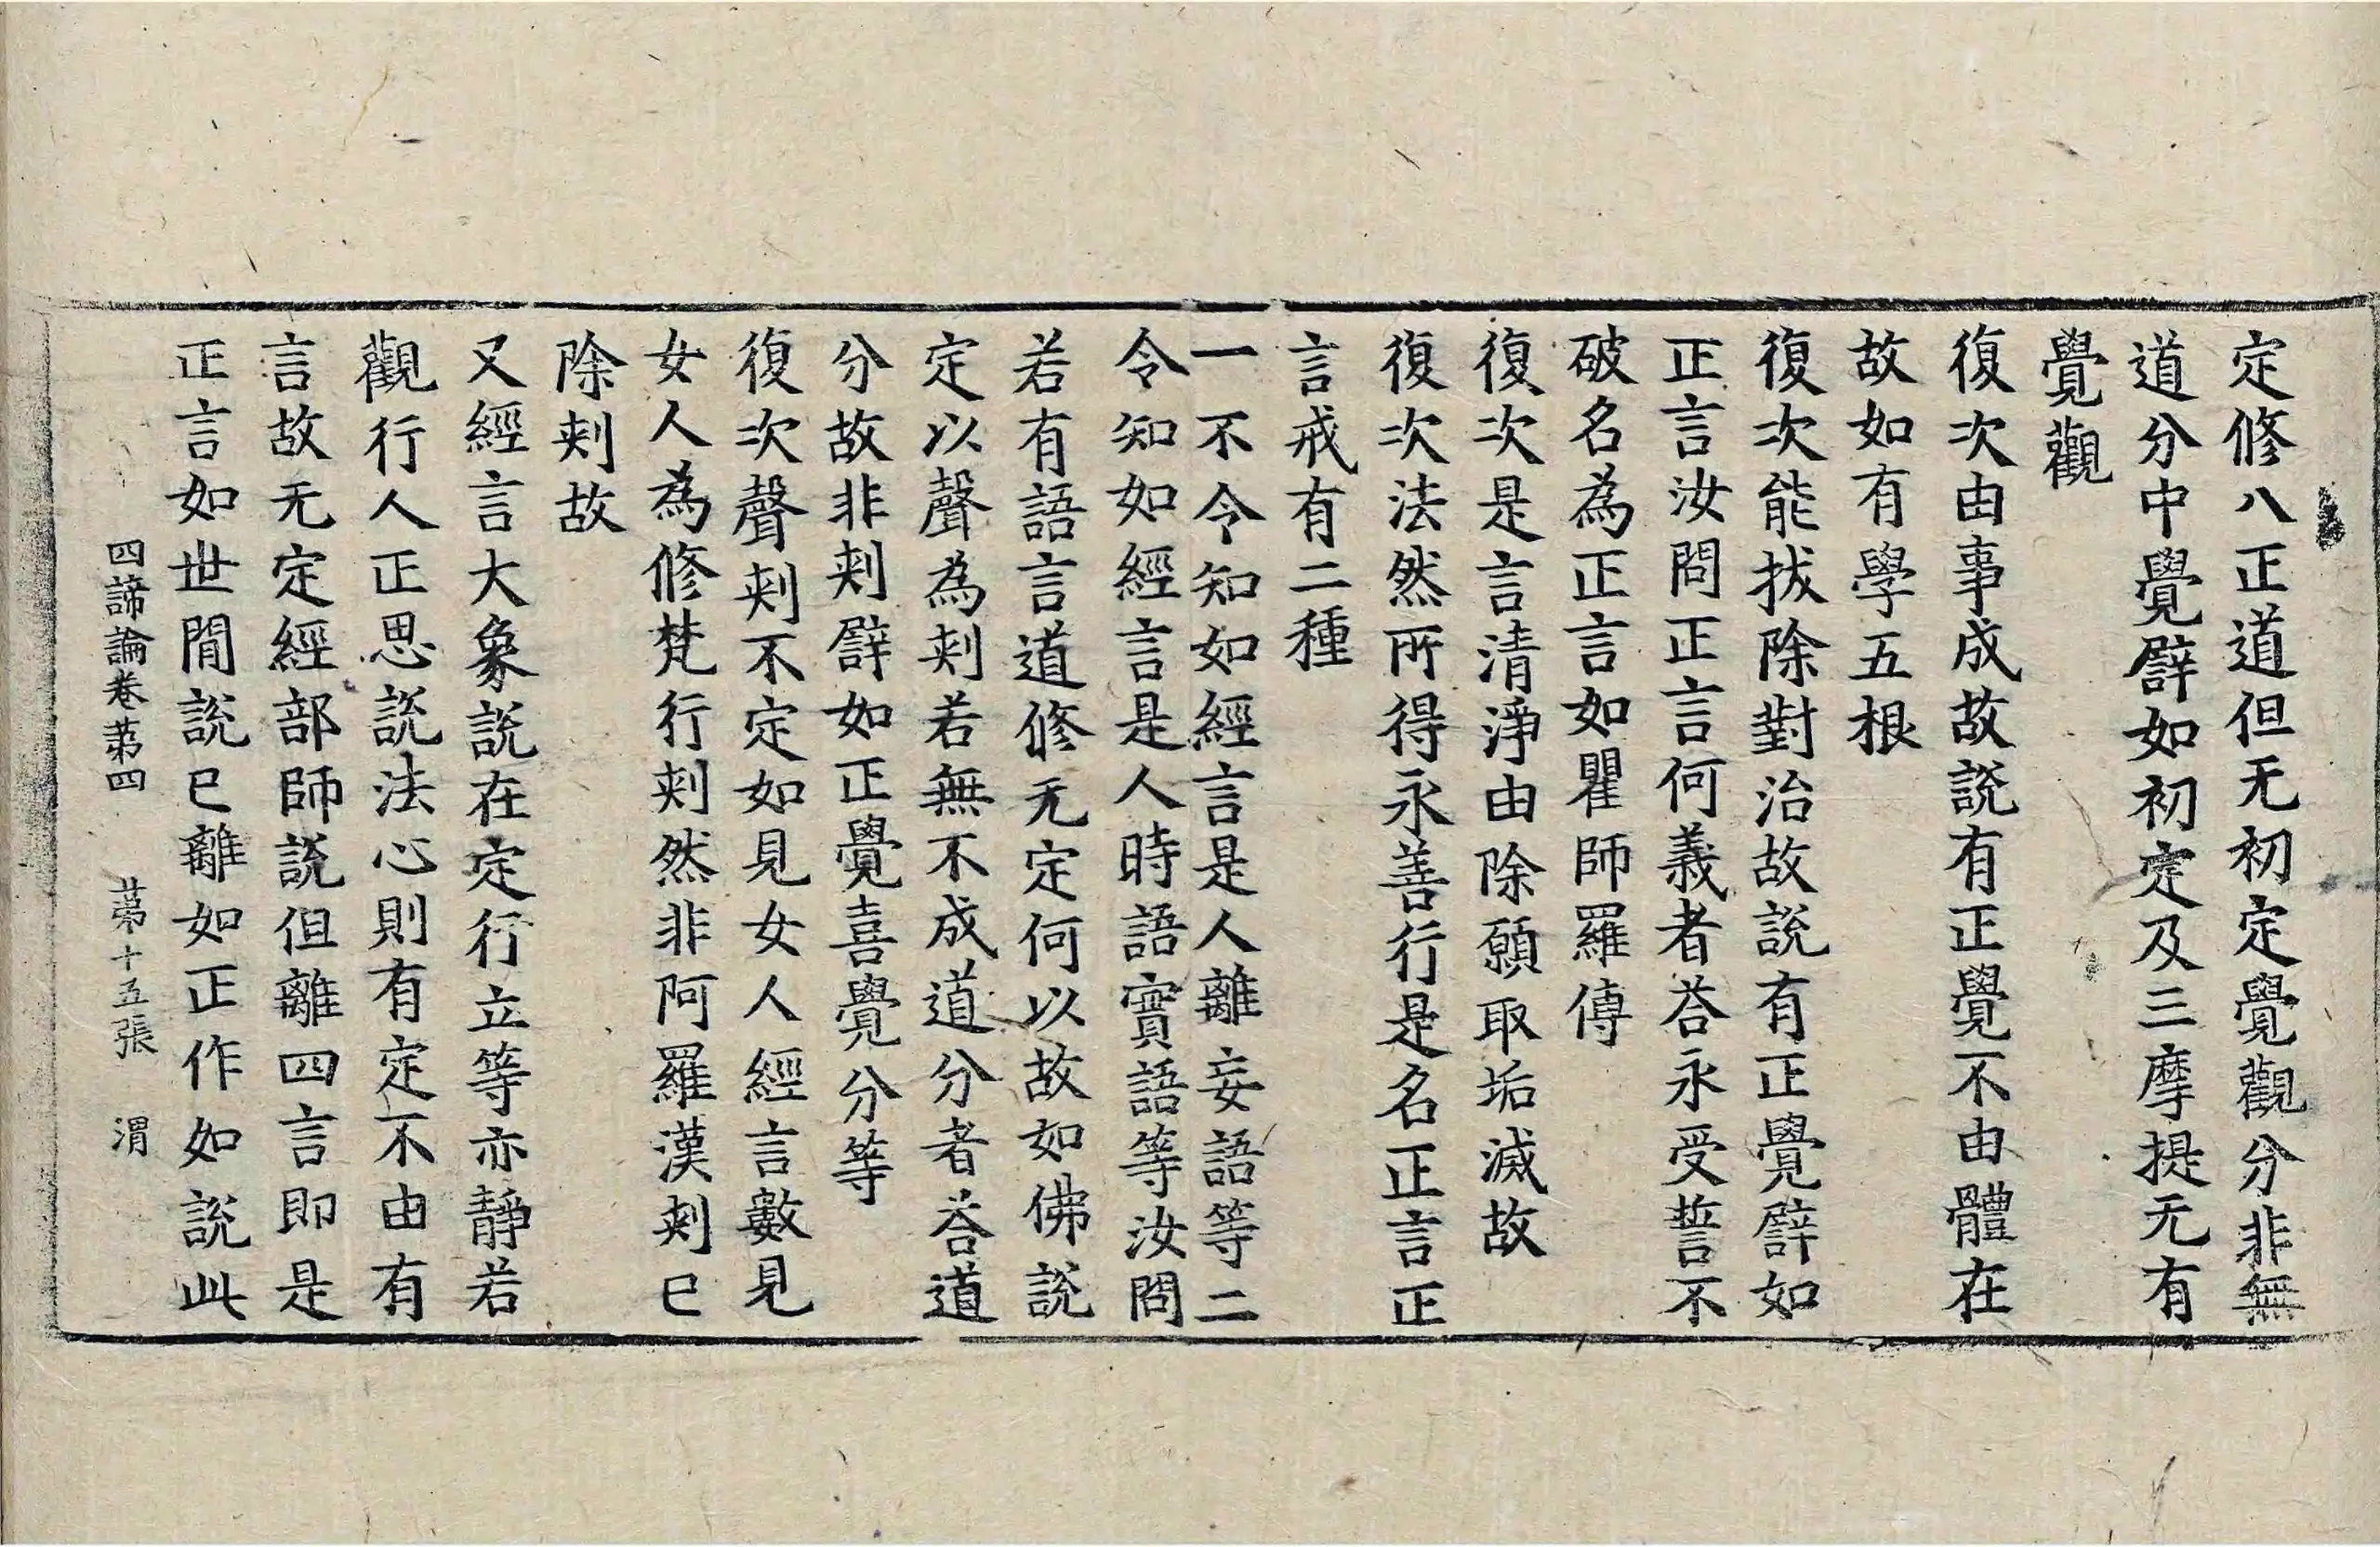 定修八正道但无初定覺觀分非無
道分中覺譬如初定及三摩提无有
覺觀
復次由事成故說有正覺不由體在
故如有學五根
復次能拔除對治故說有正覺譬如
正言汝問正言何義者荅永受誓不
破名為正言如瞿師羅傳
復次是言清淨由除願取垢滅故
復次法然所得永善行是名正言正
言戒有二種
一不令知如經言是人離妄語等二
令知如經言是人時語實語等汝問
若有語言道修无定何以故如佛說
定以聲為刾若無不成道分者荅道
分故非刾譬如正覺喜覺分等
復次聲刾不定如見女人經言數見
女人為修梵行刾然非阿羅漢刾已
除刾故
又經言大象說在定行立等亦靜若
觀行人正思說法心則有定不由有
言故无定經部師說但離四言即是
正言如世間說已離如正作如說此
四諦論卷苐四　苐十五張　渭